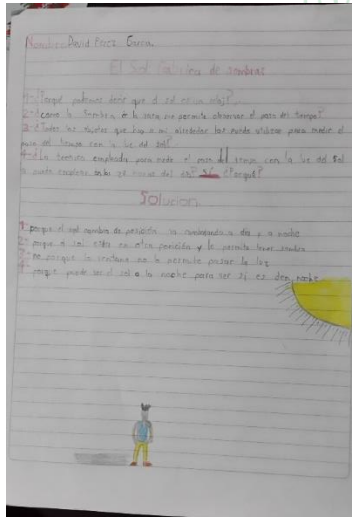 Nombre: David Pérez García.
El Sol fabrica de sombras
1-¿Porqué podemos decir que el sol es un reloj?
2-¿como la sombra de la casa me permite observar el paso del tiempo?
3-¿Todos los objetos que hay a mi alrededor los puedo utilizar para medir el
paso del tiempo con la luz del sol?
4-¿La técnica empleada para medir el paso del tiempo con la luz del Sol
la puedo emplear en las 24 horas del día? Sí ¿Porqué?
Solucion
1- porque el sol cambia de posición va cambiando a día y a noche
2- porque el sol esta en otra posición y le permite tener sombra
3- no porque la ventana no le permite pasar la luz
4- porque puede ser el sol a la noche para ser si es de noche